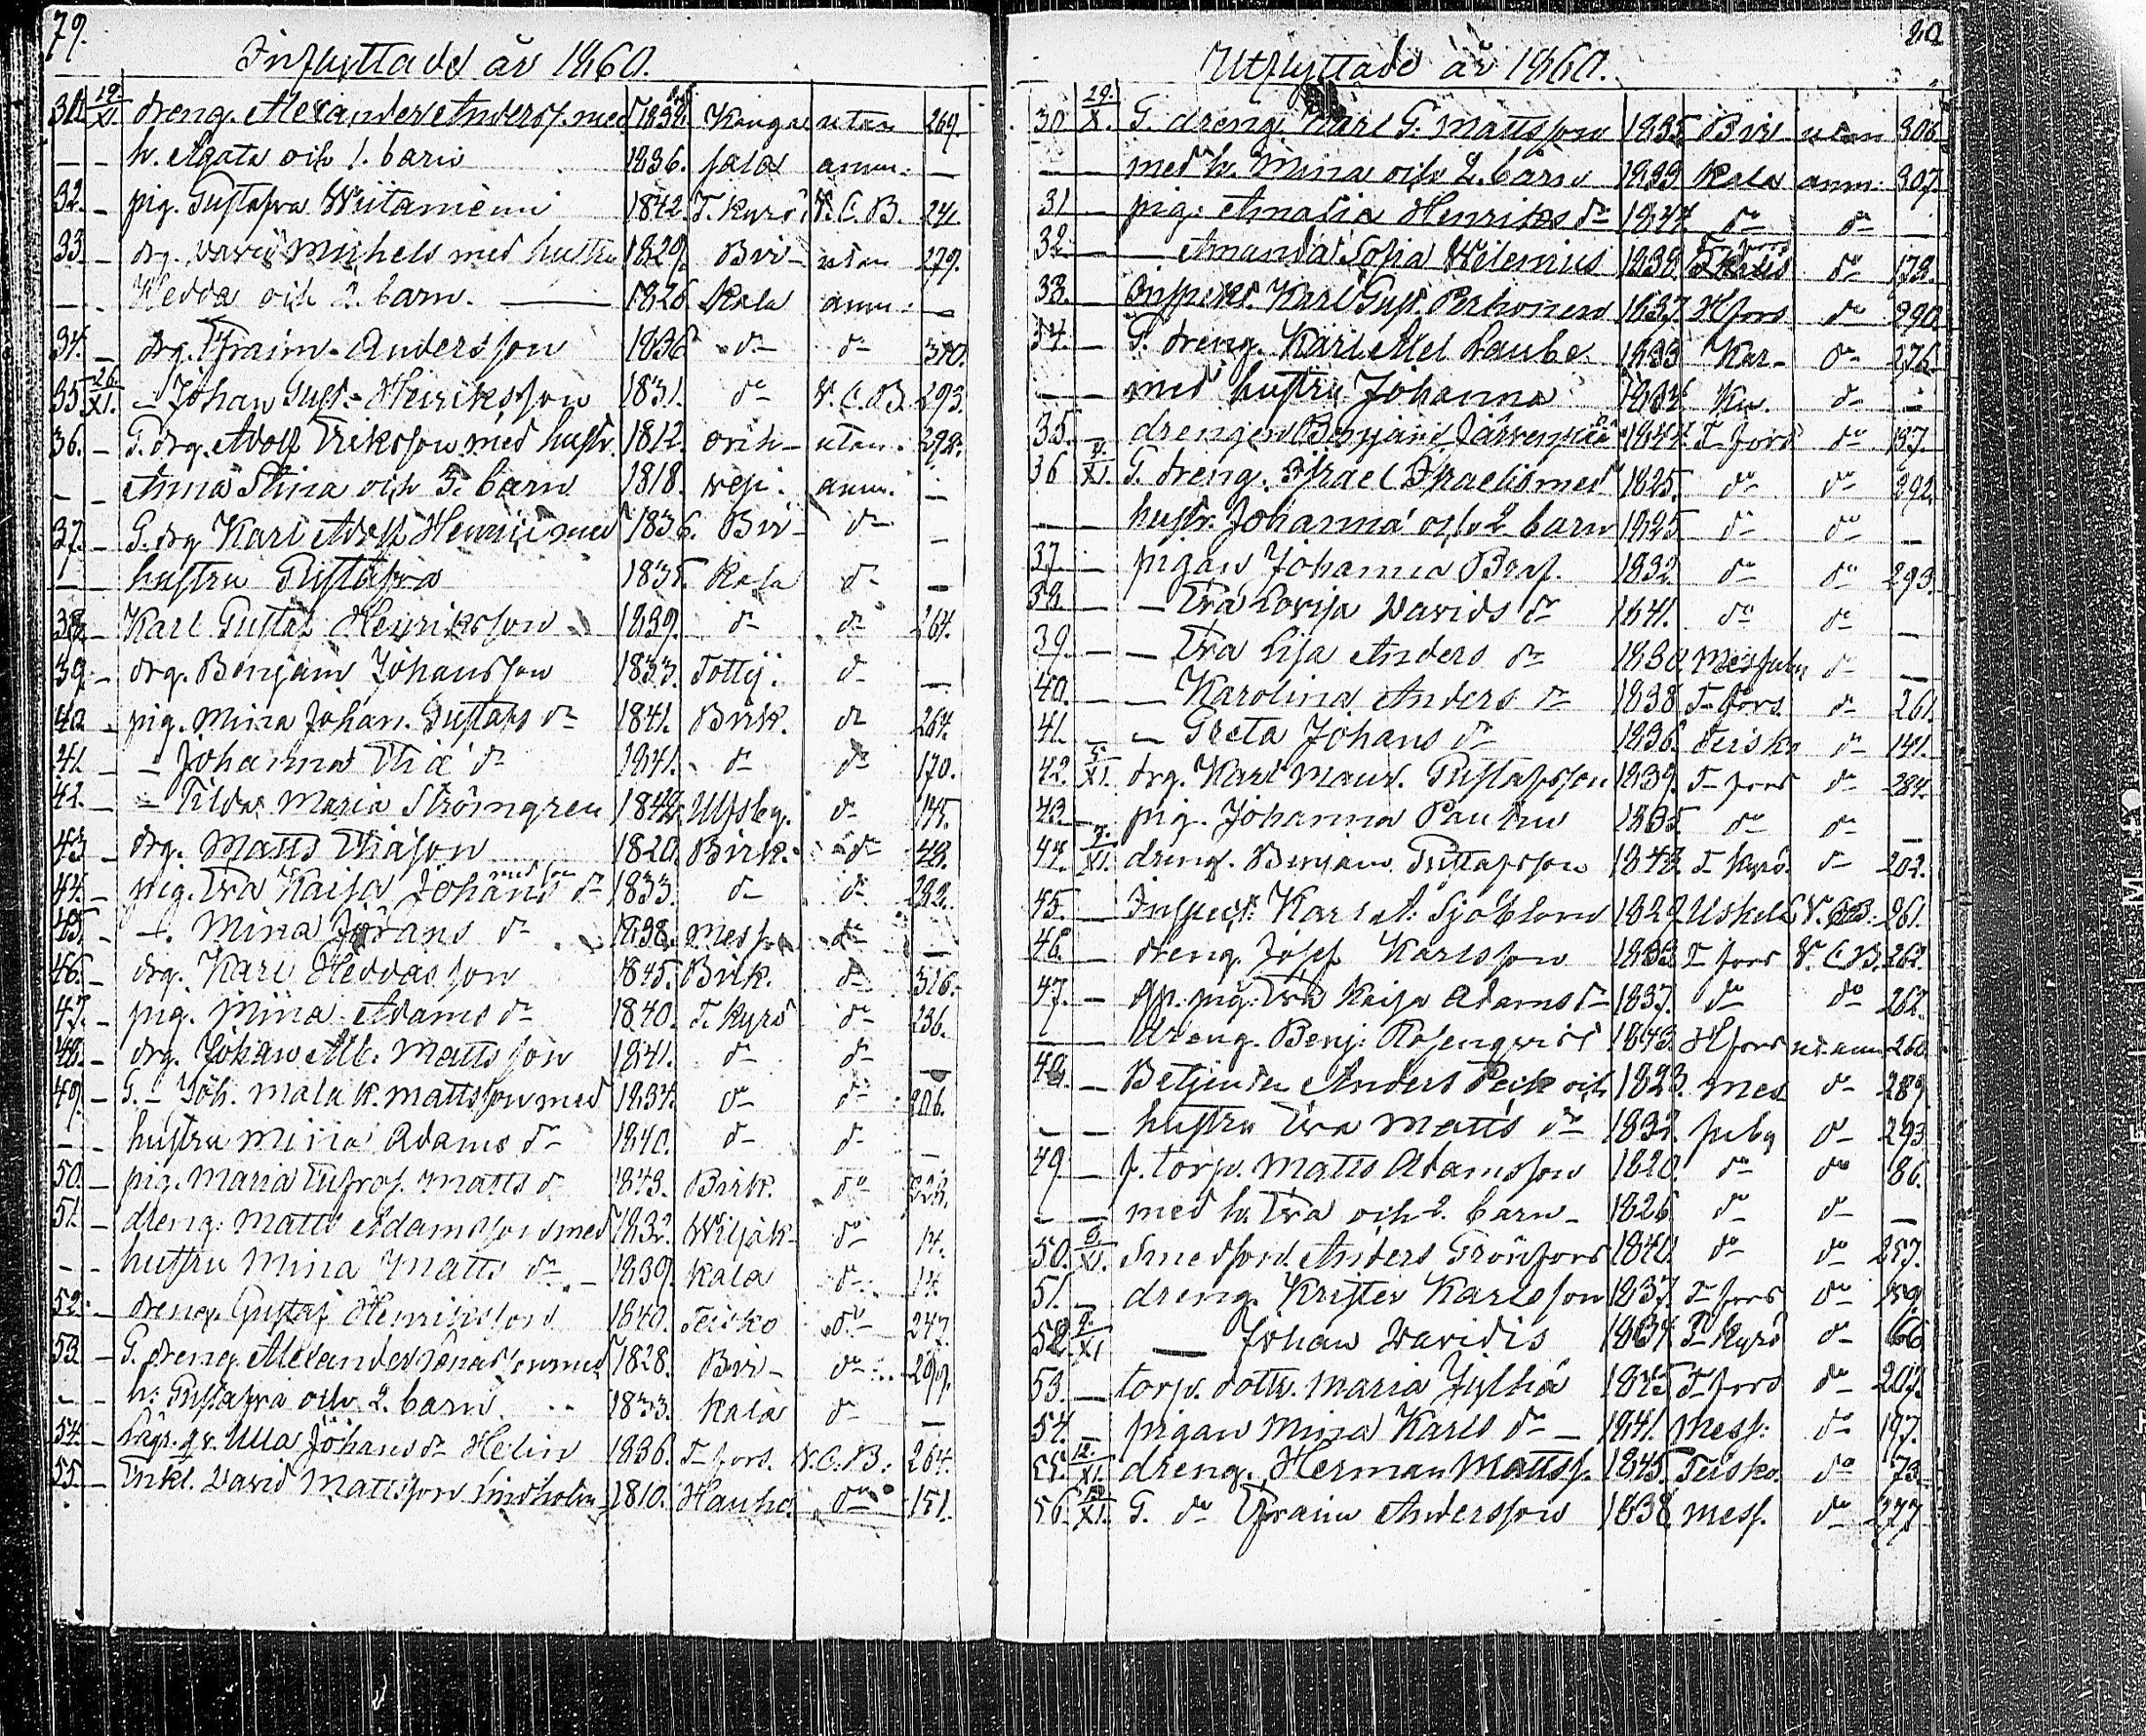 79.
Inflyttade år 1860.
31. 19/XI. dreng. Alexander Anderss. med 1832. Kanga utan 269.
— — h. Agata och 1. barn 1836. sala anm. —
32. — pig. Gustafva Wiitaniemi 1842. T. Kyrö V. C. B. 241
33. — drg. David Michels med hustru 1829. Bir- utan 279.
— — Hedda och 2. barn. — 1826. kala anm. —
34. — drg. Efraim Andersson 1836 do do 310.
35. 26/XI. — Johan Gust. Henriksson 1831. do V. C. B. 293.
36. — G. drg. Adolf Eriksson med hustr. 1812. Orih- utan 292.
— — Anna Stina och 5. barn 1818. vesi. anm. —
37. — G. drg Karl Adolf Henric med 1836. Bir- do —
— hustru Gustafva 1835. kala do —
38. — Karl Gustaf Henriksson 1839. do do 264.
39. — drg. Benjam Johansson 1833. Tottij. do —
40. — pig. Mina Johan. Gustafs dr 1841. Birk. do 264.
41. — — Johanna Thia dr 1841. do do 170.
42. — — Tilda Maria Strömgren 1842. Ulfsby. do 145.
43. — drg. Matts Thiason 1820. Birk. do 48.
44. — pig. Eva Kaisa Johans dr med son 1833. do do 282.
45. — —. Mina Jörans dr 1838. Mess. do —
46. — drg. Karl Heddasson 1845. Birk. do 316.
47. — pig. Mina Adams dr 1840. T. Kyrö do 236.
48. — drg. Johan Alb. Mattsson 1841. do do —
49. — G. — Joh. Malak. Mattsson med 1834. do do 206.
— — hustru Mina Adams dr 1840. do do —
50. — pig. Maria Eufros. Matts dr 1843. Birk. do
51. — dreng. Matts Adamsson med 1832. Wiljak- do 14.
— — hustru Mina Matts dr — 1839. kala do 14.
52. — dreng. Gustaf Henriksson 1840. Teisko do 247.
53. — G. dreng. Alexander Jonasson med 1828. Bir- do 299.
— — h. Gustafva och 2. barn. 1833. kala do —
54. — Lägr. qv. Ulla Johans dr Helin 1836. T-fors. V. C. B. 264.
55. — Enkl. David Mattsson Lindholm 1810. Hauho. do 151.
80
Utflyttade år 1860.
30. 29./X. G. dreng. Karl G. Mattsson 1835. Bir utan 306.
— — med h. Mina och 2. barn 1833. kala anm. 307.
31 — pig. Amalia Henriks dr 1844. do do —
32. — — Amanda Sofia Helenius 1838. T-fors do 178.
33. — Inspekt. Karl Gust. Perhonen 1837. Hfors do 290.
34. — G. dreng. Karl Abel Laube. 1833. Kar- do 276.
— — med hustru Johanna 1834. Ku. do —
35. — drengen Benjam. Järvenpää 1844. T-fors do 137.
36 2./XI. G. dreng. Israel Israels med 1825. do do 292.
— — hustr. Johanna och 2 barn 1825 do do —
37. — pigan Johanna Bras. 1832. do do 293.
38. — — Eva Lovisa Davids dr 1841. do do —
39. — — Eva Lisa Anders dr 1830. Messuby do —
40. — — Karolina Anders dr 1838. T-fors. do 261.
41. — — Greta Johans dr 1836. Teisko do 141.
42. 5./XI. drg. Karl Maur. Gustafsson 1839. T-fors do 284.
43. — pig. Johanna Pauku 1835. do do —
44. 7./XI. dreng. Benjam. Gustafsson 1843. T-Kyrö. do 202.
45. — Inspect. Karl A. Sjöblom 1829. Uskela V. C. B. 261.
46. — dreng. Josef Karlsson 1833. T-fors V. C. B. 262.
47. — Gf. pig. Eva Kaisa Adams dr 1837. do do 262.
— — dreng. Benj. Rosenqvist 1843. Hfors ut. anm. 260.
48. — Betjenten Anders Peck och 1823. Mes do 289.
— — hustru Eva Matts dr 1832. suby do 293
49. — f. torp. Matts Adamsson 1820. do do 86.
— — med h. Eva och 2. barn — 1826. do do —
50. 8./XI. Smedson. Anders Grönfors 1840. do do 257.
51. — dreng. Krister Karlsson 1837. T-fors do 89.
52. 9./XI — Johan Davidis 1834. T-Kyrö do 66
53. — torp. dottr. Maria Jylhä 1845. T-fors do 207.
54. — pigan Mina Karls dr — 1841. Mess. do 197.
55. 12./XI. dreng. Herman Mattss. 1845. Teisko. do 73.
56. XI. G. do Efraim Andersson 1838. Mess. do 277